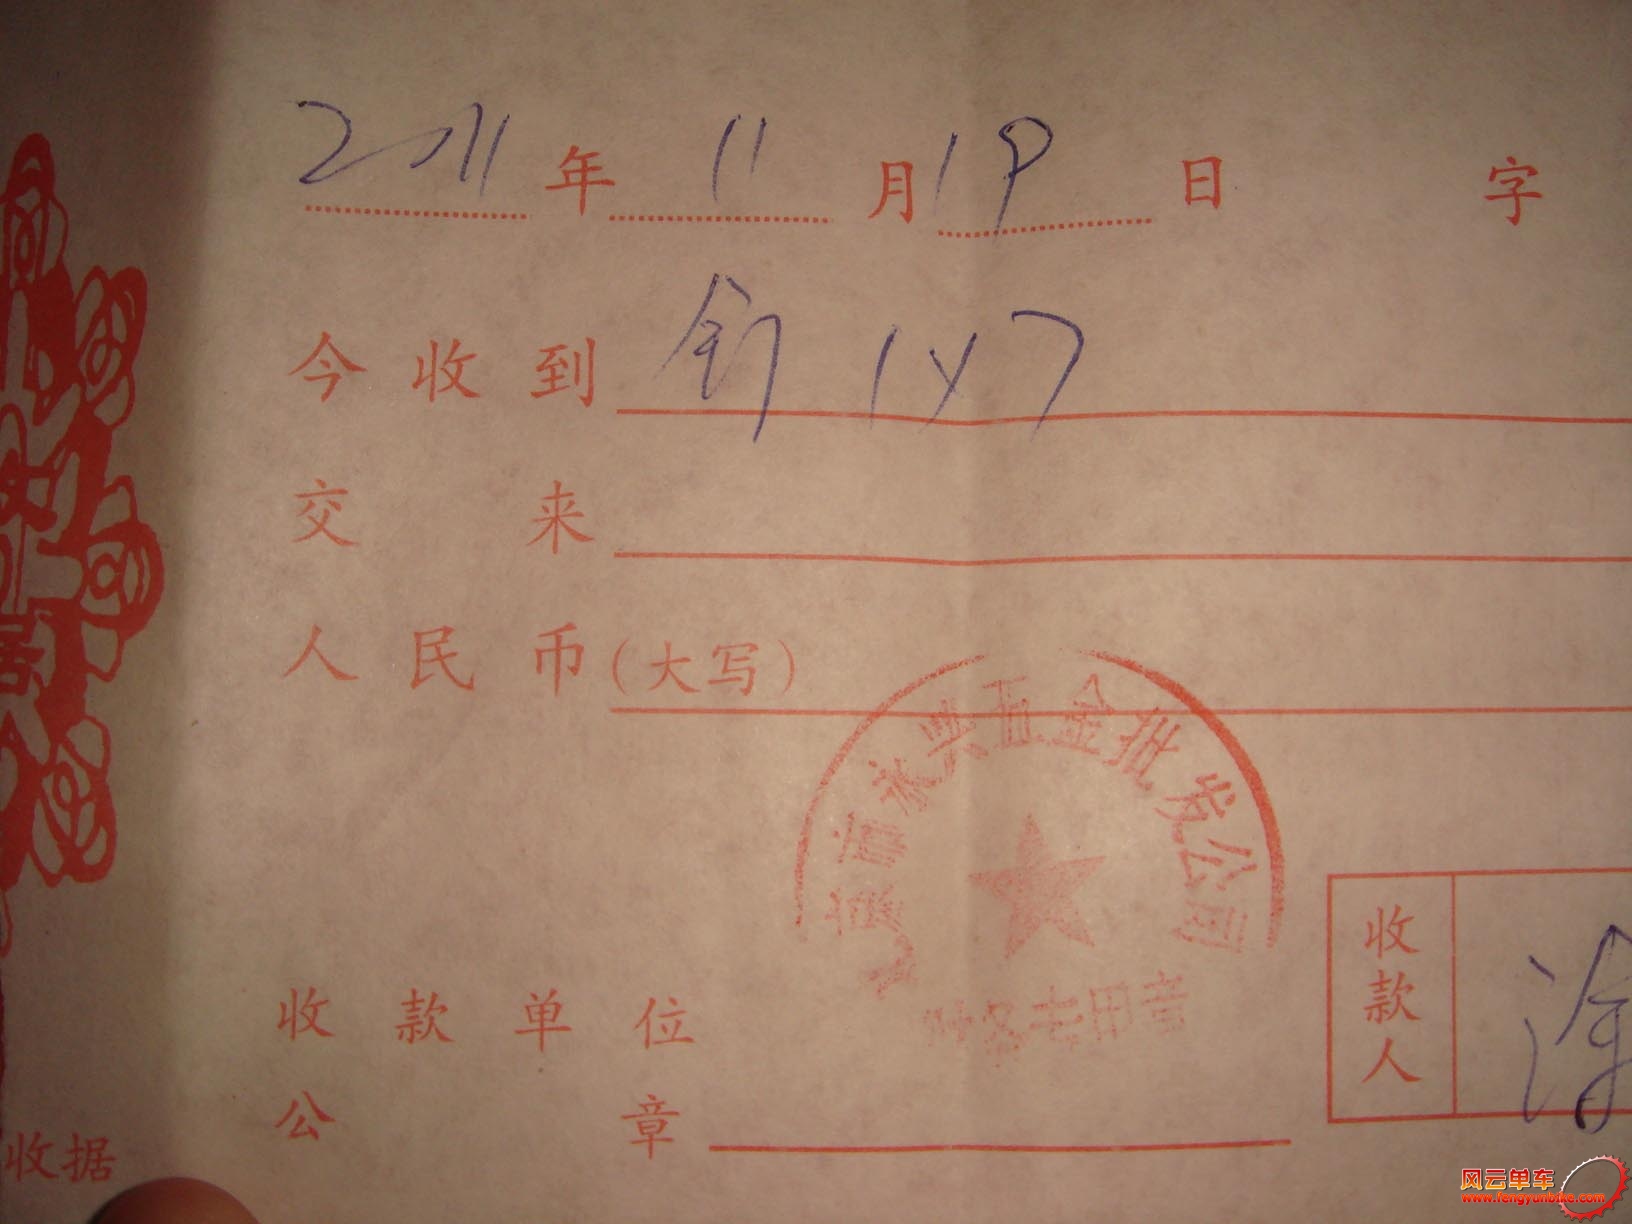 2011年11月19日 字
今收到 钉 1×7
交来
人民币(大写)
永兴五金批发公司
财务专用章
收款单位
公章
收款人 涂
收据
风云单车
www.fengyunbike.com